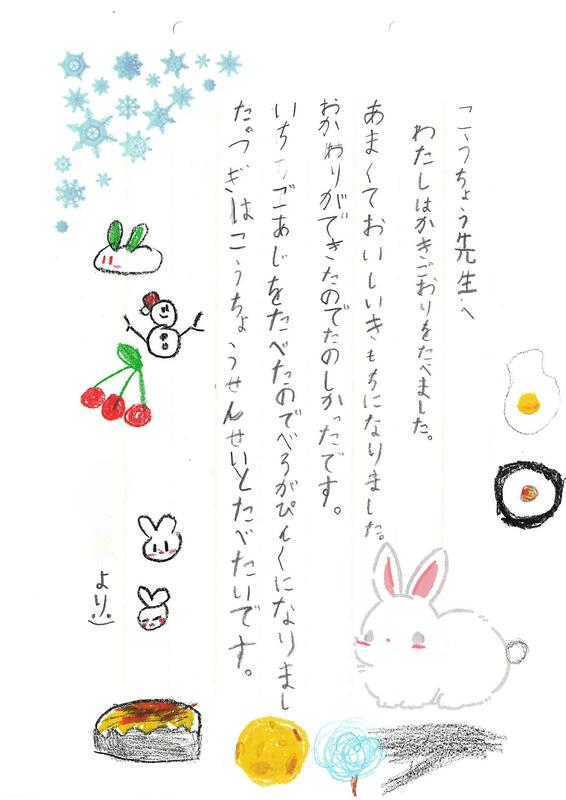 こうちょう先生へ
わたしはかきごおりをたべました。
あまくておいしいきもちになりました。
おかわりができたのでたのしかったです。
いちごあじをたべたのでべろがぴんくになりまし
た。つぎはこうちょうせんせいとたべたいです。
より